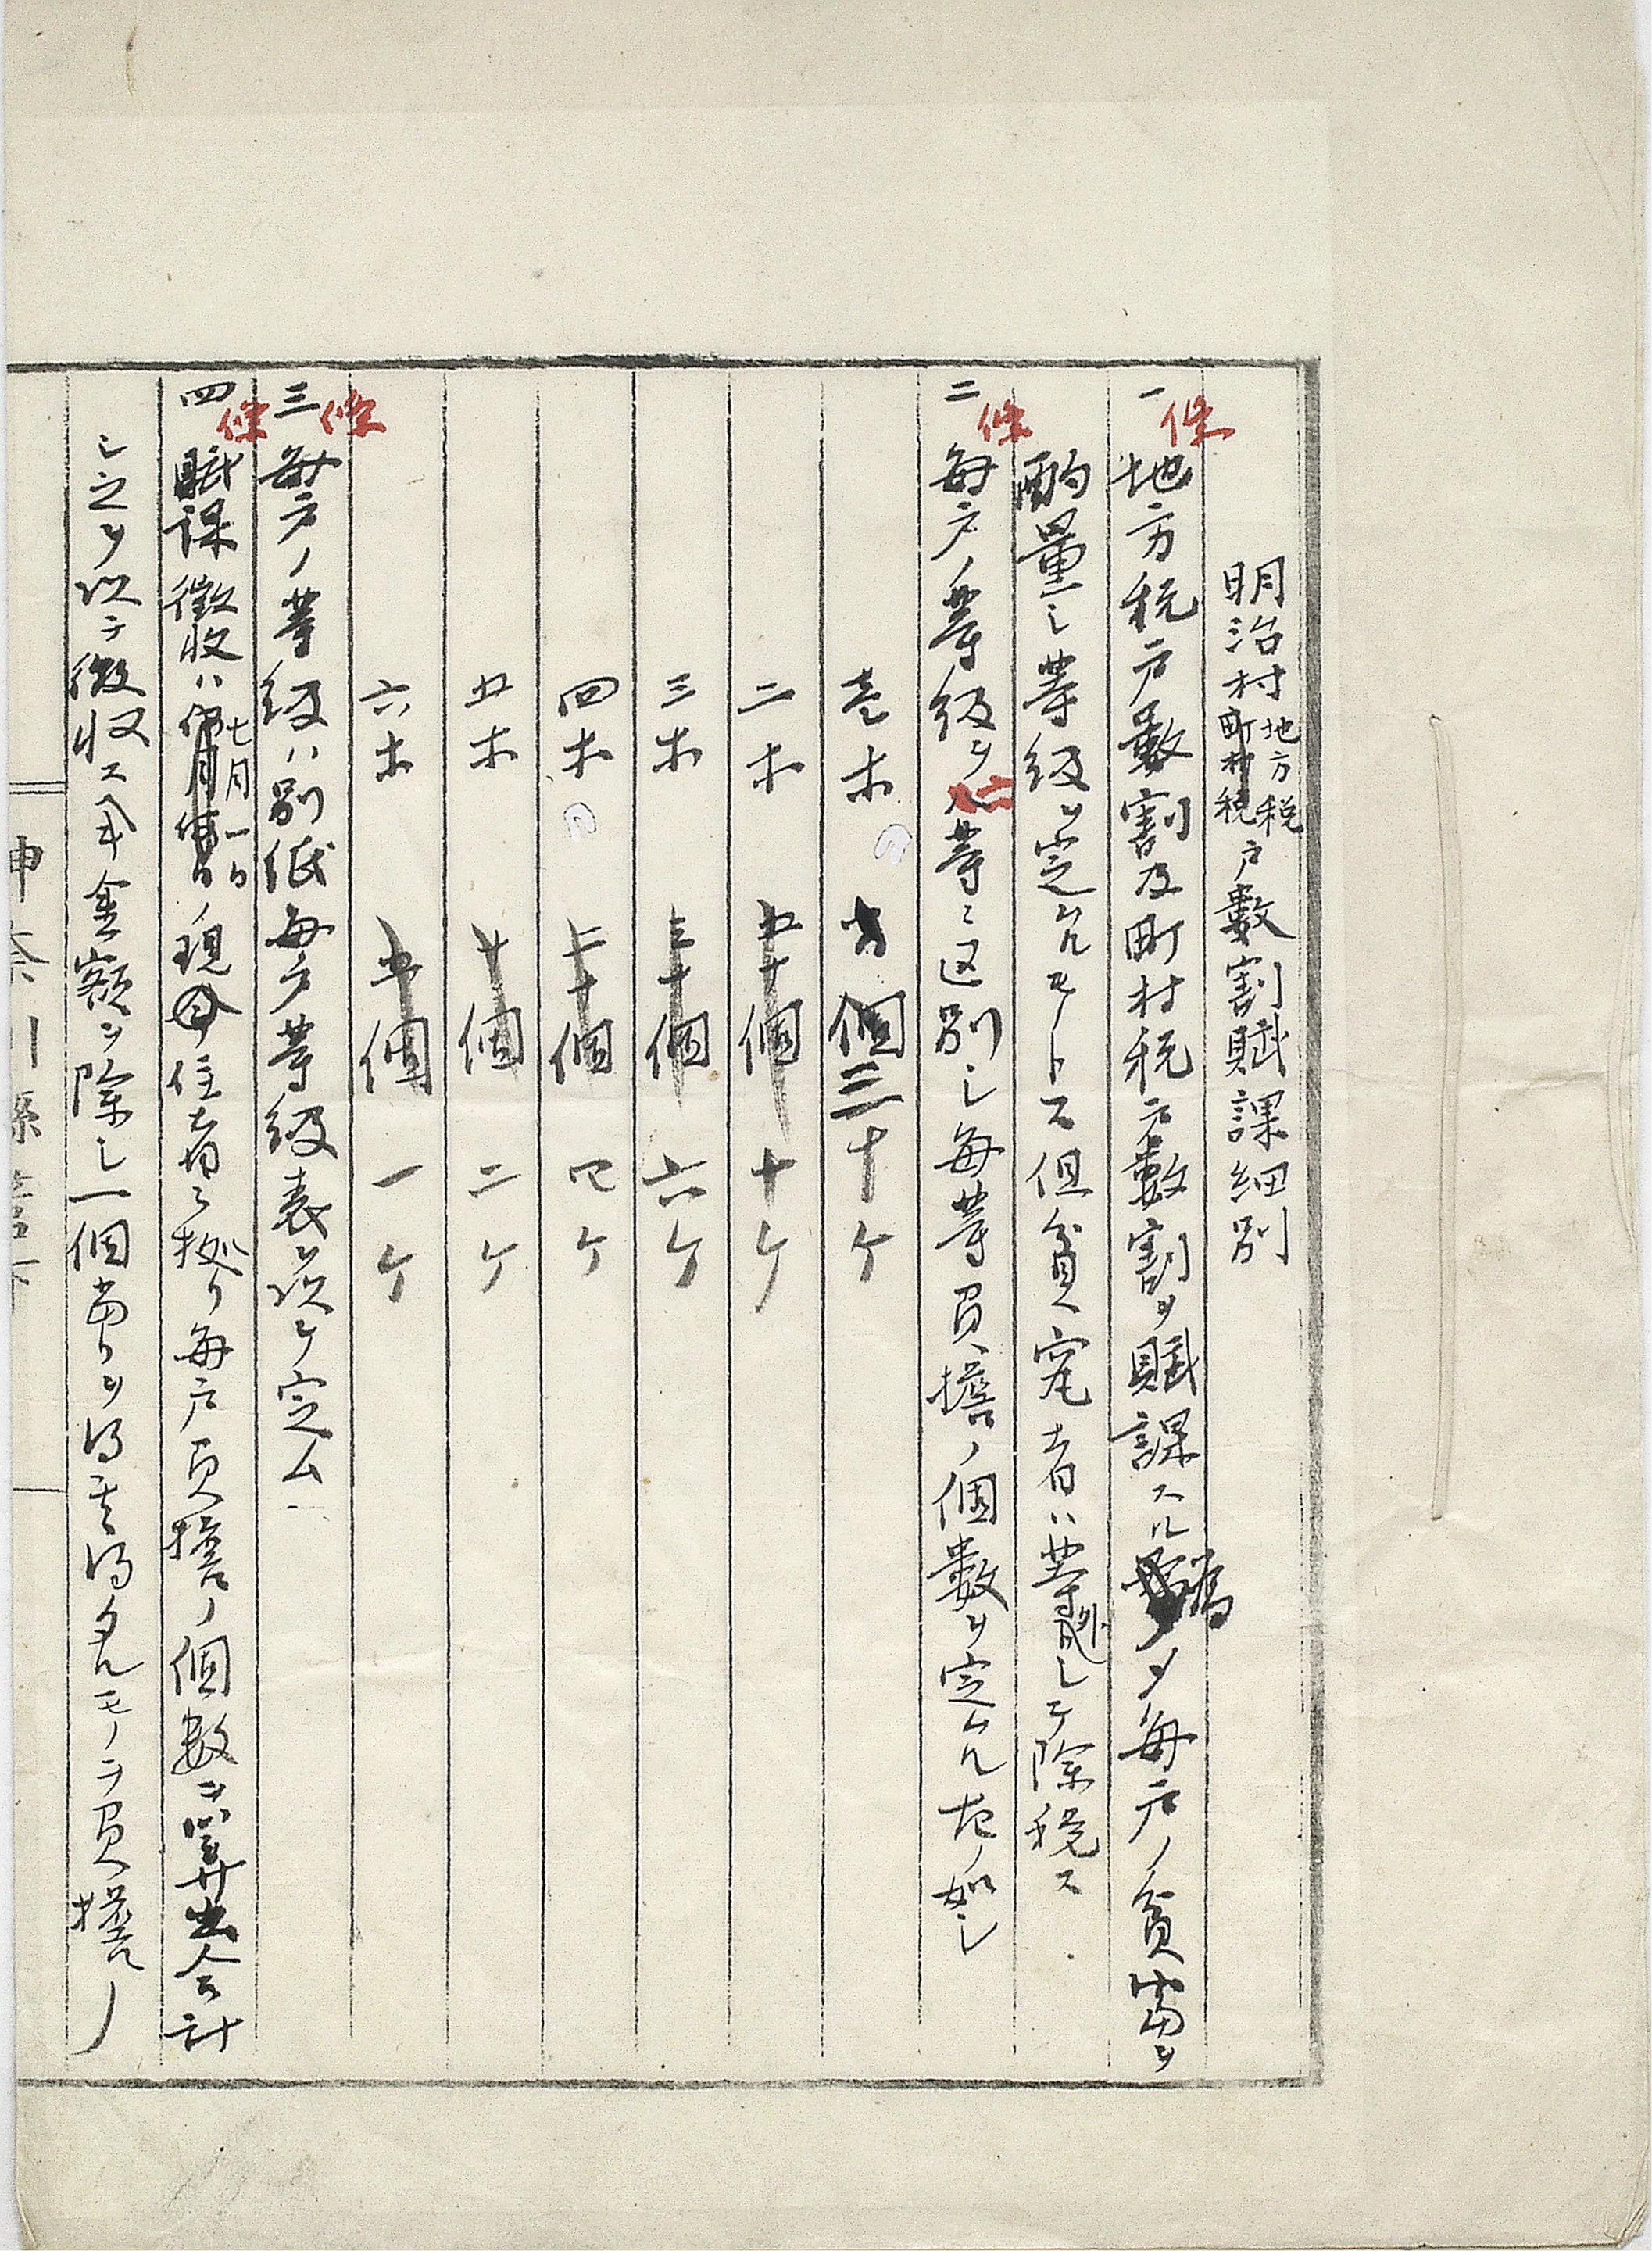 明治村地方税町村税戸数割賦課細別
一條 地方税戸数割及町村税戸数割ヲ賦課スル為メ毎戸ノ貧富ヲ
酌量シ等級ヲ定ムルモノトス但貧窮者ハ等外トシテ除税ス
二條 毎戸ノ等級ヲ六等ニ区別シ毎等負擔ノ個数ヲ定ムル左ノ如シ
壱等 百個 三十ケ
二等 五十個 十ケ
三等 三十個 六ケ
四等 二十個 四ケ
五等 十個 二ケ
六等 五個 一ケ
三條 毎戸ノ等級ハ別紙毎戸等級表ヲ以テ定ム
四條 賦課徴収ハ七月一日ノ現住者ニ拠リ毎戸負擔ノ個数ヲ算出合計
シ之ヲ以テ徴収ス可キ金額ヲ除シ一個當リヲ得其得タルモノヲ負擔ノ
神奈川縣